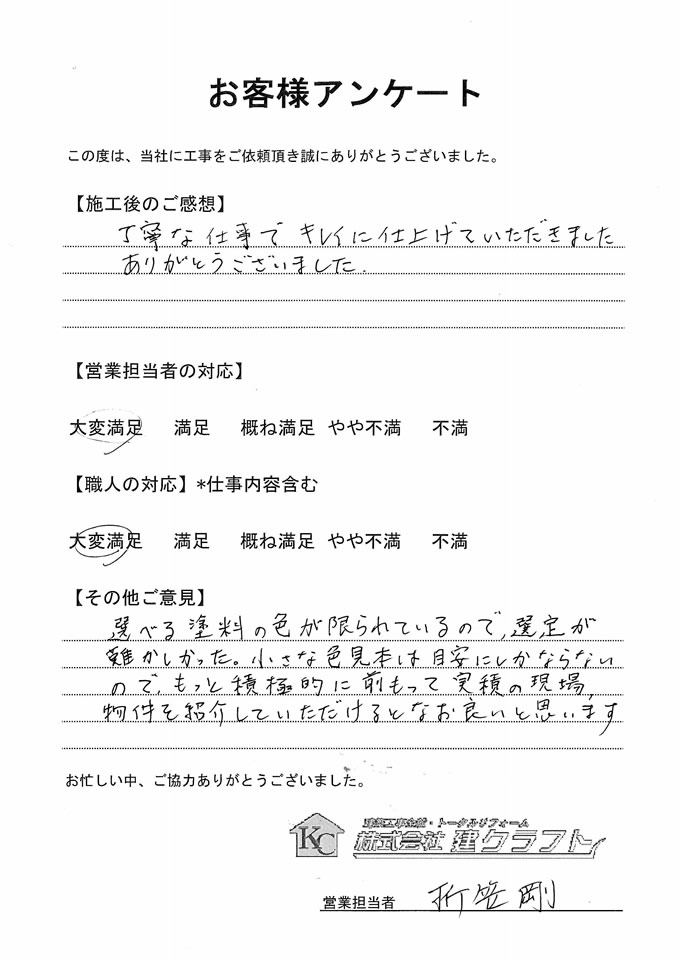 お客様アンケート
この度は、当社に工事をご依頼頂き誠にありがとうございました。
【施工後のご感想】
丁寧な仕事でキレイに仕上げていただきました
ありがとうございました.
【営業担当者の対応】
大変満足 満足 概ね満足 やや不満 不満
【職人の対応】*仕事内容含む
大変満足 満足 概ね満足 やや不満 不満
【その他ご意見】
選べる塗料の色が限られているので、選定が
難かしかった。小さな色見本は目安にしかならない
ので、もっと積極的に前もって実積の現場,
物件を紹介していただけるとなお良いと思います
お忙しい中、ご協力ありがとうございました。
KC
建築工事全般・トータルリフォーム
株式会社 建クラフト
営業担当者 折笠剛